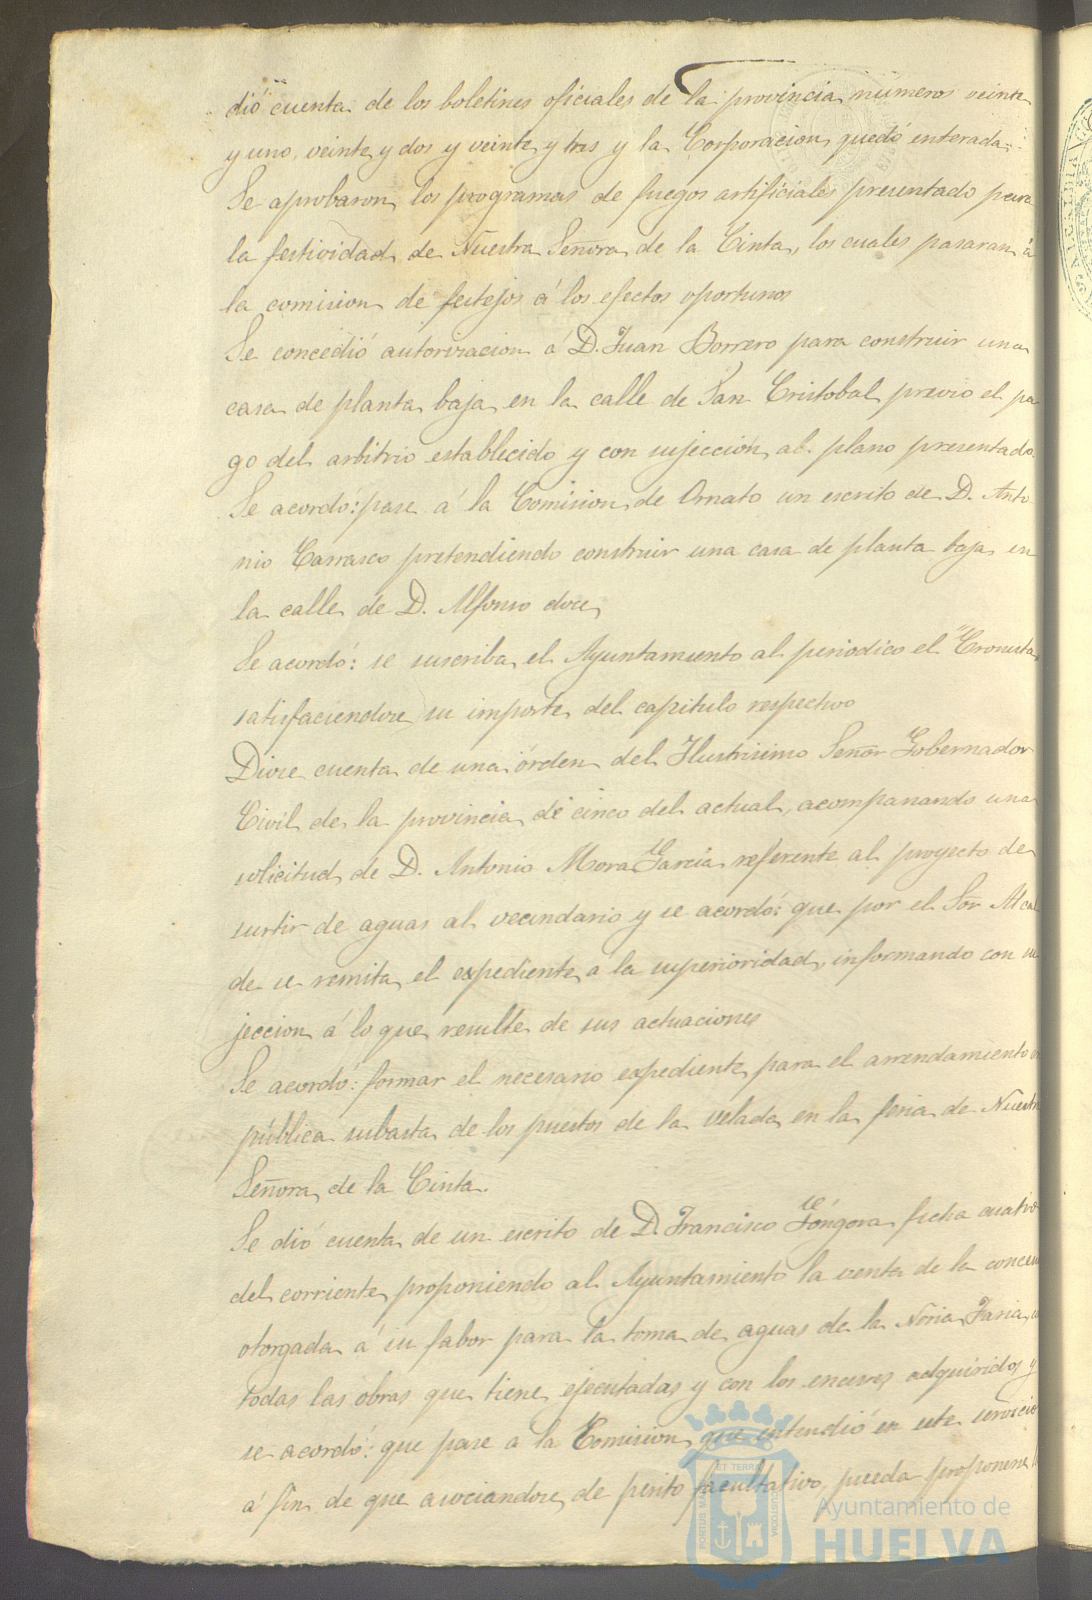 dió cuenta de los boletines oficiales de la provincia números veinte
y uno, veinte y dos y veinte y tres y la Corporacion quedó enterada.
Se aprobaron los programas de fuegos artificiales presentado para
la festividad de Nuestra Señora de la Cinta, los cuales pasaran á
la comision de festejos á los efectos oportunos
Se concedió autorizacion á D. Juan Borrero para construir una
casa de planta baja en la calle de San Cristobal previo el pa
go del arbitrio establecido y con sujeccion al plano presentado.
Se acordó: pase á la Comision de Ornato un escrito de D. Anto
nio Carrasco pretendiendo construir una casa de planta baja en
la calle de D. Alfonso doce
Se acordó: se suscriba el Ayuntamiento al periodico el "Cronista
satisfaciendose su importe del capitulo respectivo
Diose cuenta de una órden del Ilustrisimo Señor Gobernador
Civil de la provincia de cinco del actual, acompanando una
solicitud de D. Antonio Mora Garcia referente al proyecto de
surtir de aguas al vecindario y se acordó: que por el Sor Alcal
de se remita el expediente á la superioridad, informando con su
jeccion á lo que resulte de sus actuaciones
Se acordó: formar el necesario expediente para el arrendamiento
pública subasta de los puestos de la velada en la feria de Nuestra
Señora de la Cinta.
Se dió cuenta de un escrito de D. Francisco Góngora fecha cuatro
del corriente proponiendo al Ayuntamiento la venta de la
otorgada á su fabor para la toma de aguas de la Noria
todas las obras que tiene ejecutadas y con los enseres adquiridos y
se acordó: que pase á la Comision que entendió en este servicio
á fin de que asociandose de perito facultativo, pueda proponer
PORTUS MARIS ET TERRAE CUSTODIA
Ayuntamiento de
HUELVA